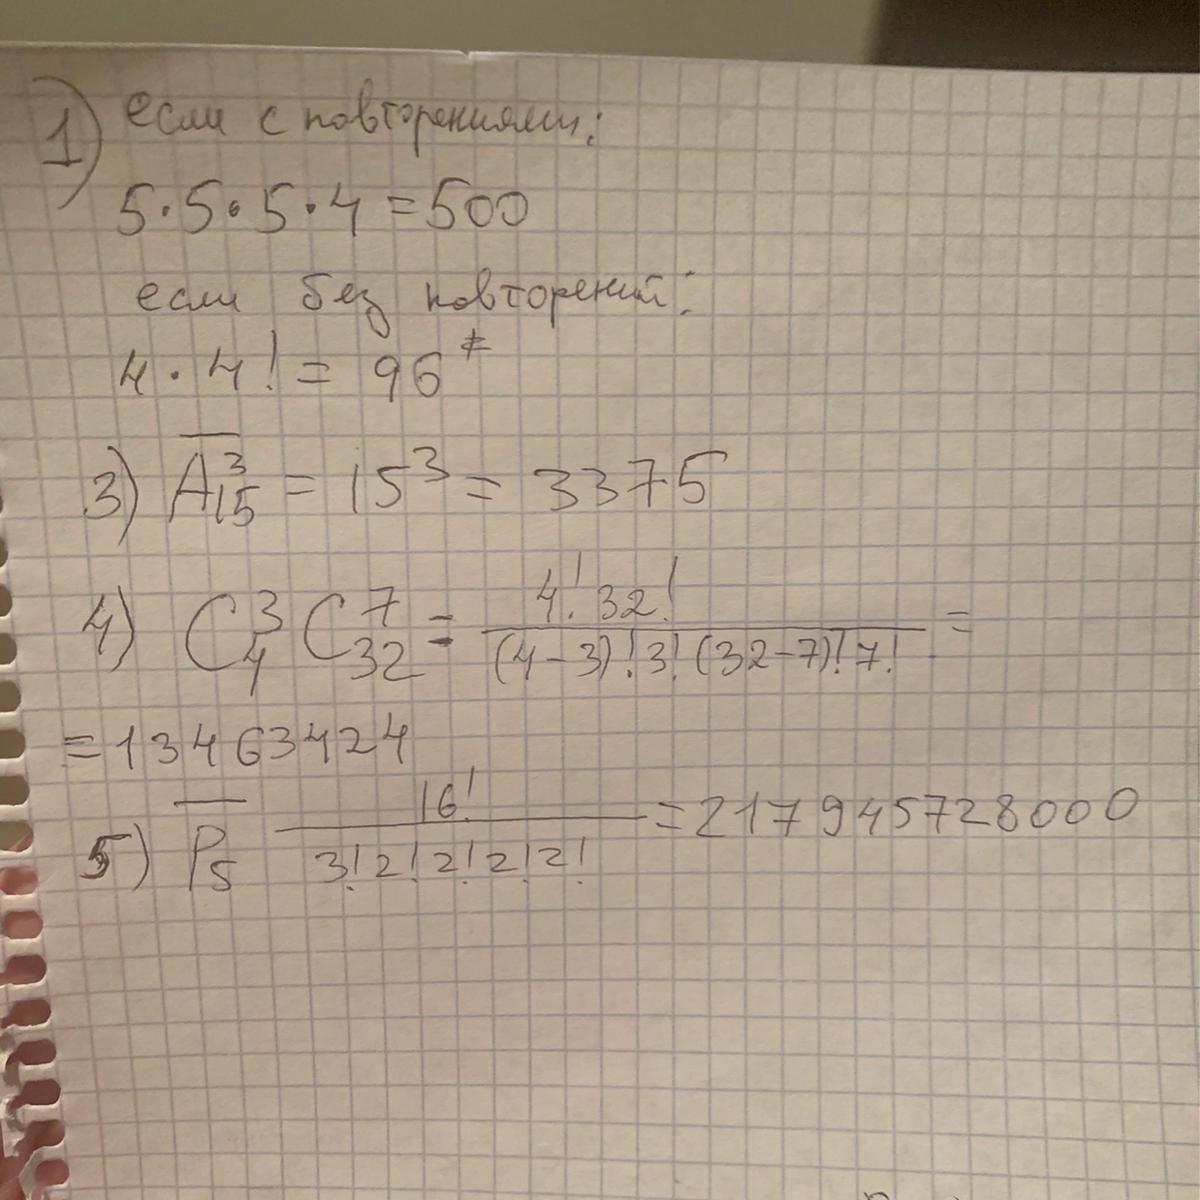 1) если с повторениями:
5·5·5·4=500
если без повторений:
4·4!=96*
3) A̅³₁₅ = 15³ = 3375
4) C³₄ C⁷₃₂ = 4! 32! / (4-3)! 3! (32-7)! 7! =
=13463424
5) P̅₅ 16! / 3! 2! 2! 2! 2! =217945728000